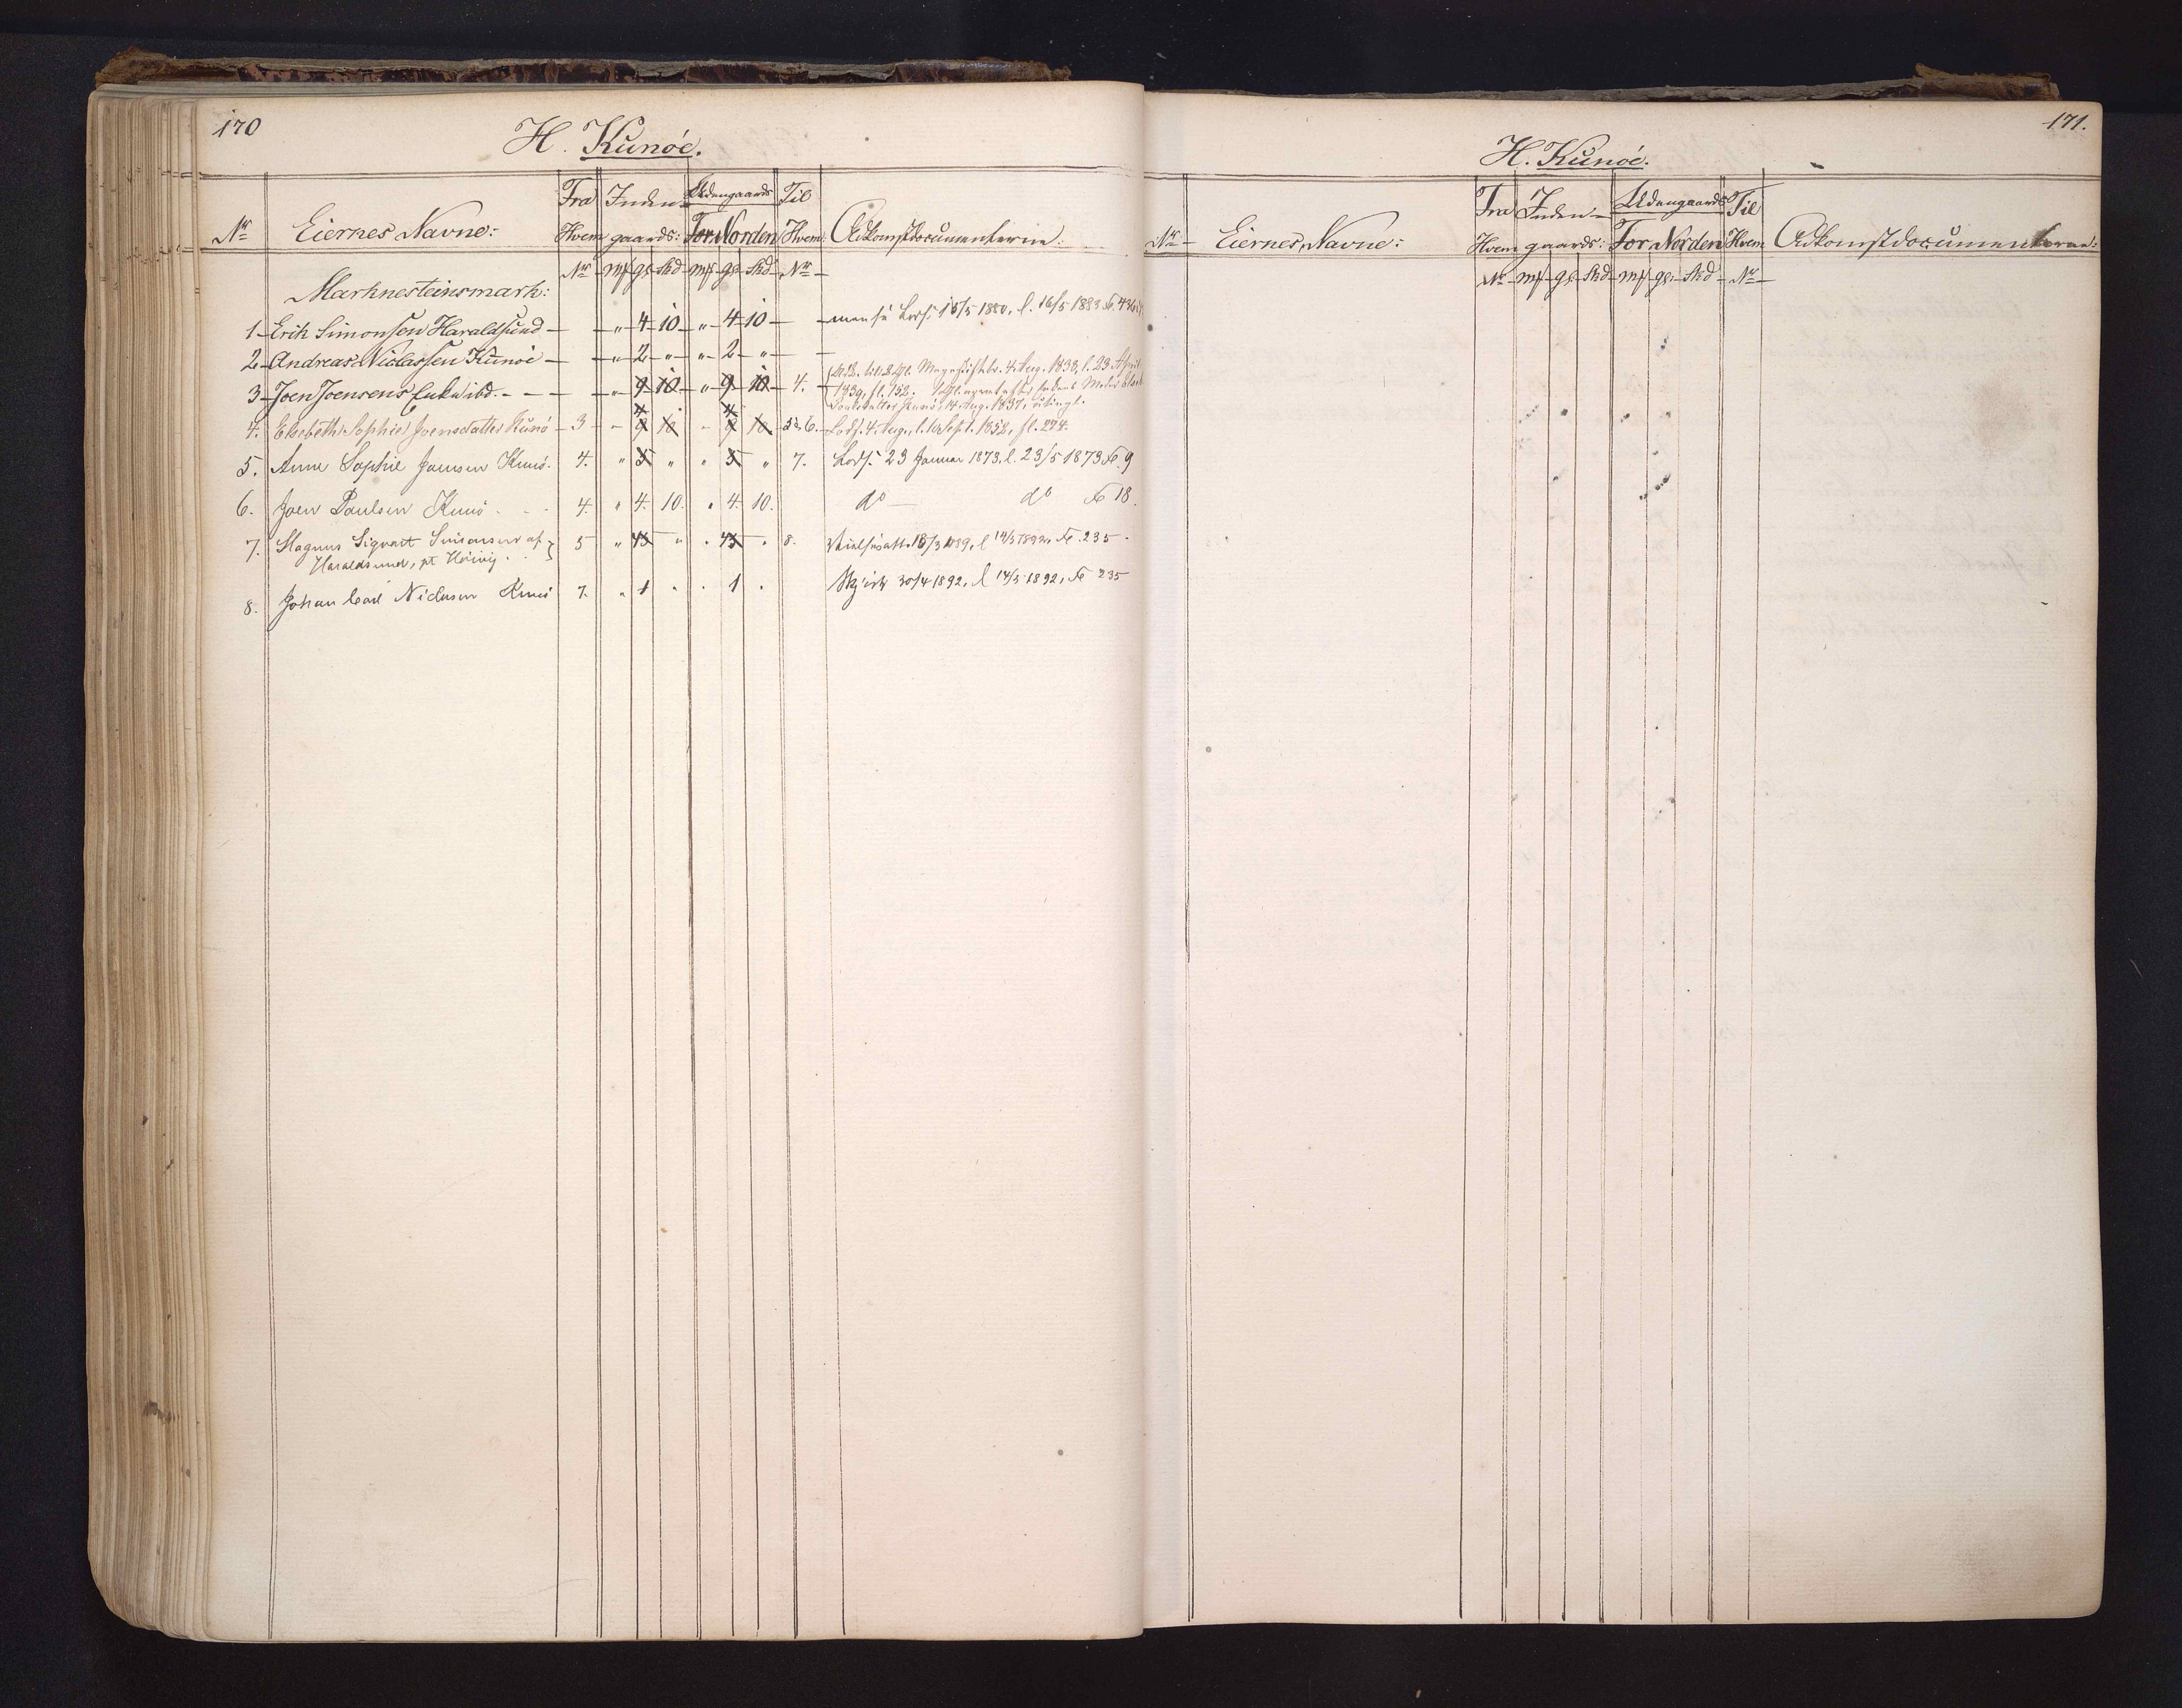 170
H. Kunöe.
Nr Eiernes Navne: Fra Hvem Inden-gaards: Udengaards For Norden Til Hvem Adkomstdocumenterne:
Nr mk gl. Skd mk gl. Skd Nr
Marknesteinsmark:
1 Erik Simonsen Haraldsund - " 4 10 " 4 10 - Lods. 16/5 1880, l. 16/5 1883
2 Andreas Niclassen Kunöe - " 2 " " 2 "
3 Joen Joensens Enke ibd. - - - " 9 10 " 9 10 4. 4. Aug. 1838, l. 23 April
1839, fl. 152.
14. Aug. 1837,
4. Elsebeth Sophie Joensdatter Kunö 3 - 9 10 - 9 10 5 & 6. Lods. 4. Aug., l. Sept. 1852, fl. 274.
4 4
5. Anne Sophie Joensen Kunö. 4. " 5 " " 5 " 7. Lods. 23 Januar 1873, l. 23/5 1873 Fo. 9
6. Joen Poulsen Kunö - - 4. " 4. 10. " 4. 10. do — do Fo 18.
7. Magnus Sigvart Simonsen af 5 " 45 " " 45 " 8. l 14/5 1892, Fo. 235.
Haraldsund, pt
8. Johan Carl Niclasen Kunö 7. " 1 " " 1 " Skjöde 30/4 1892, l 14/5 1892, Fo 235
171.
H. Kunöe.
Nr Eiernes Navne: Fra Hvem Inden-gaards: Udengaards For Norden Til Hvem Adkomstdocumenterne:
Nr mk gl. Skd mk gl. Skd Nr